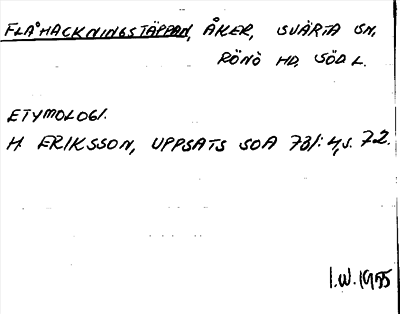 FLÅHACKNINGSTÄPPAN, ÅKER, SVÄRTA SN,
RÖNÖ HD. SÖD L.
ETYMOLOGI.
H ERIKSSON, UPPSATS SOA 73/: 4, s. 72.
I.W. 1955